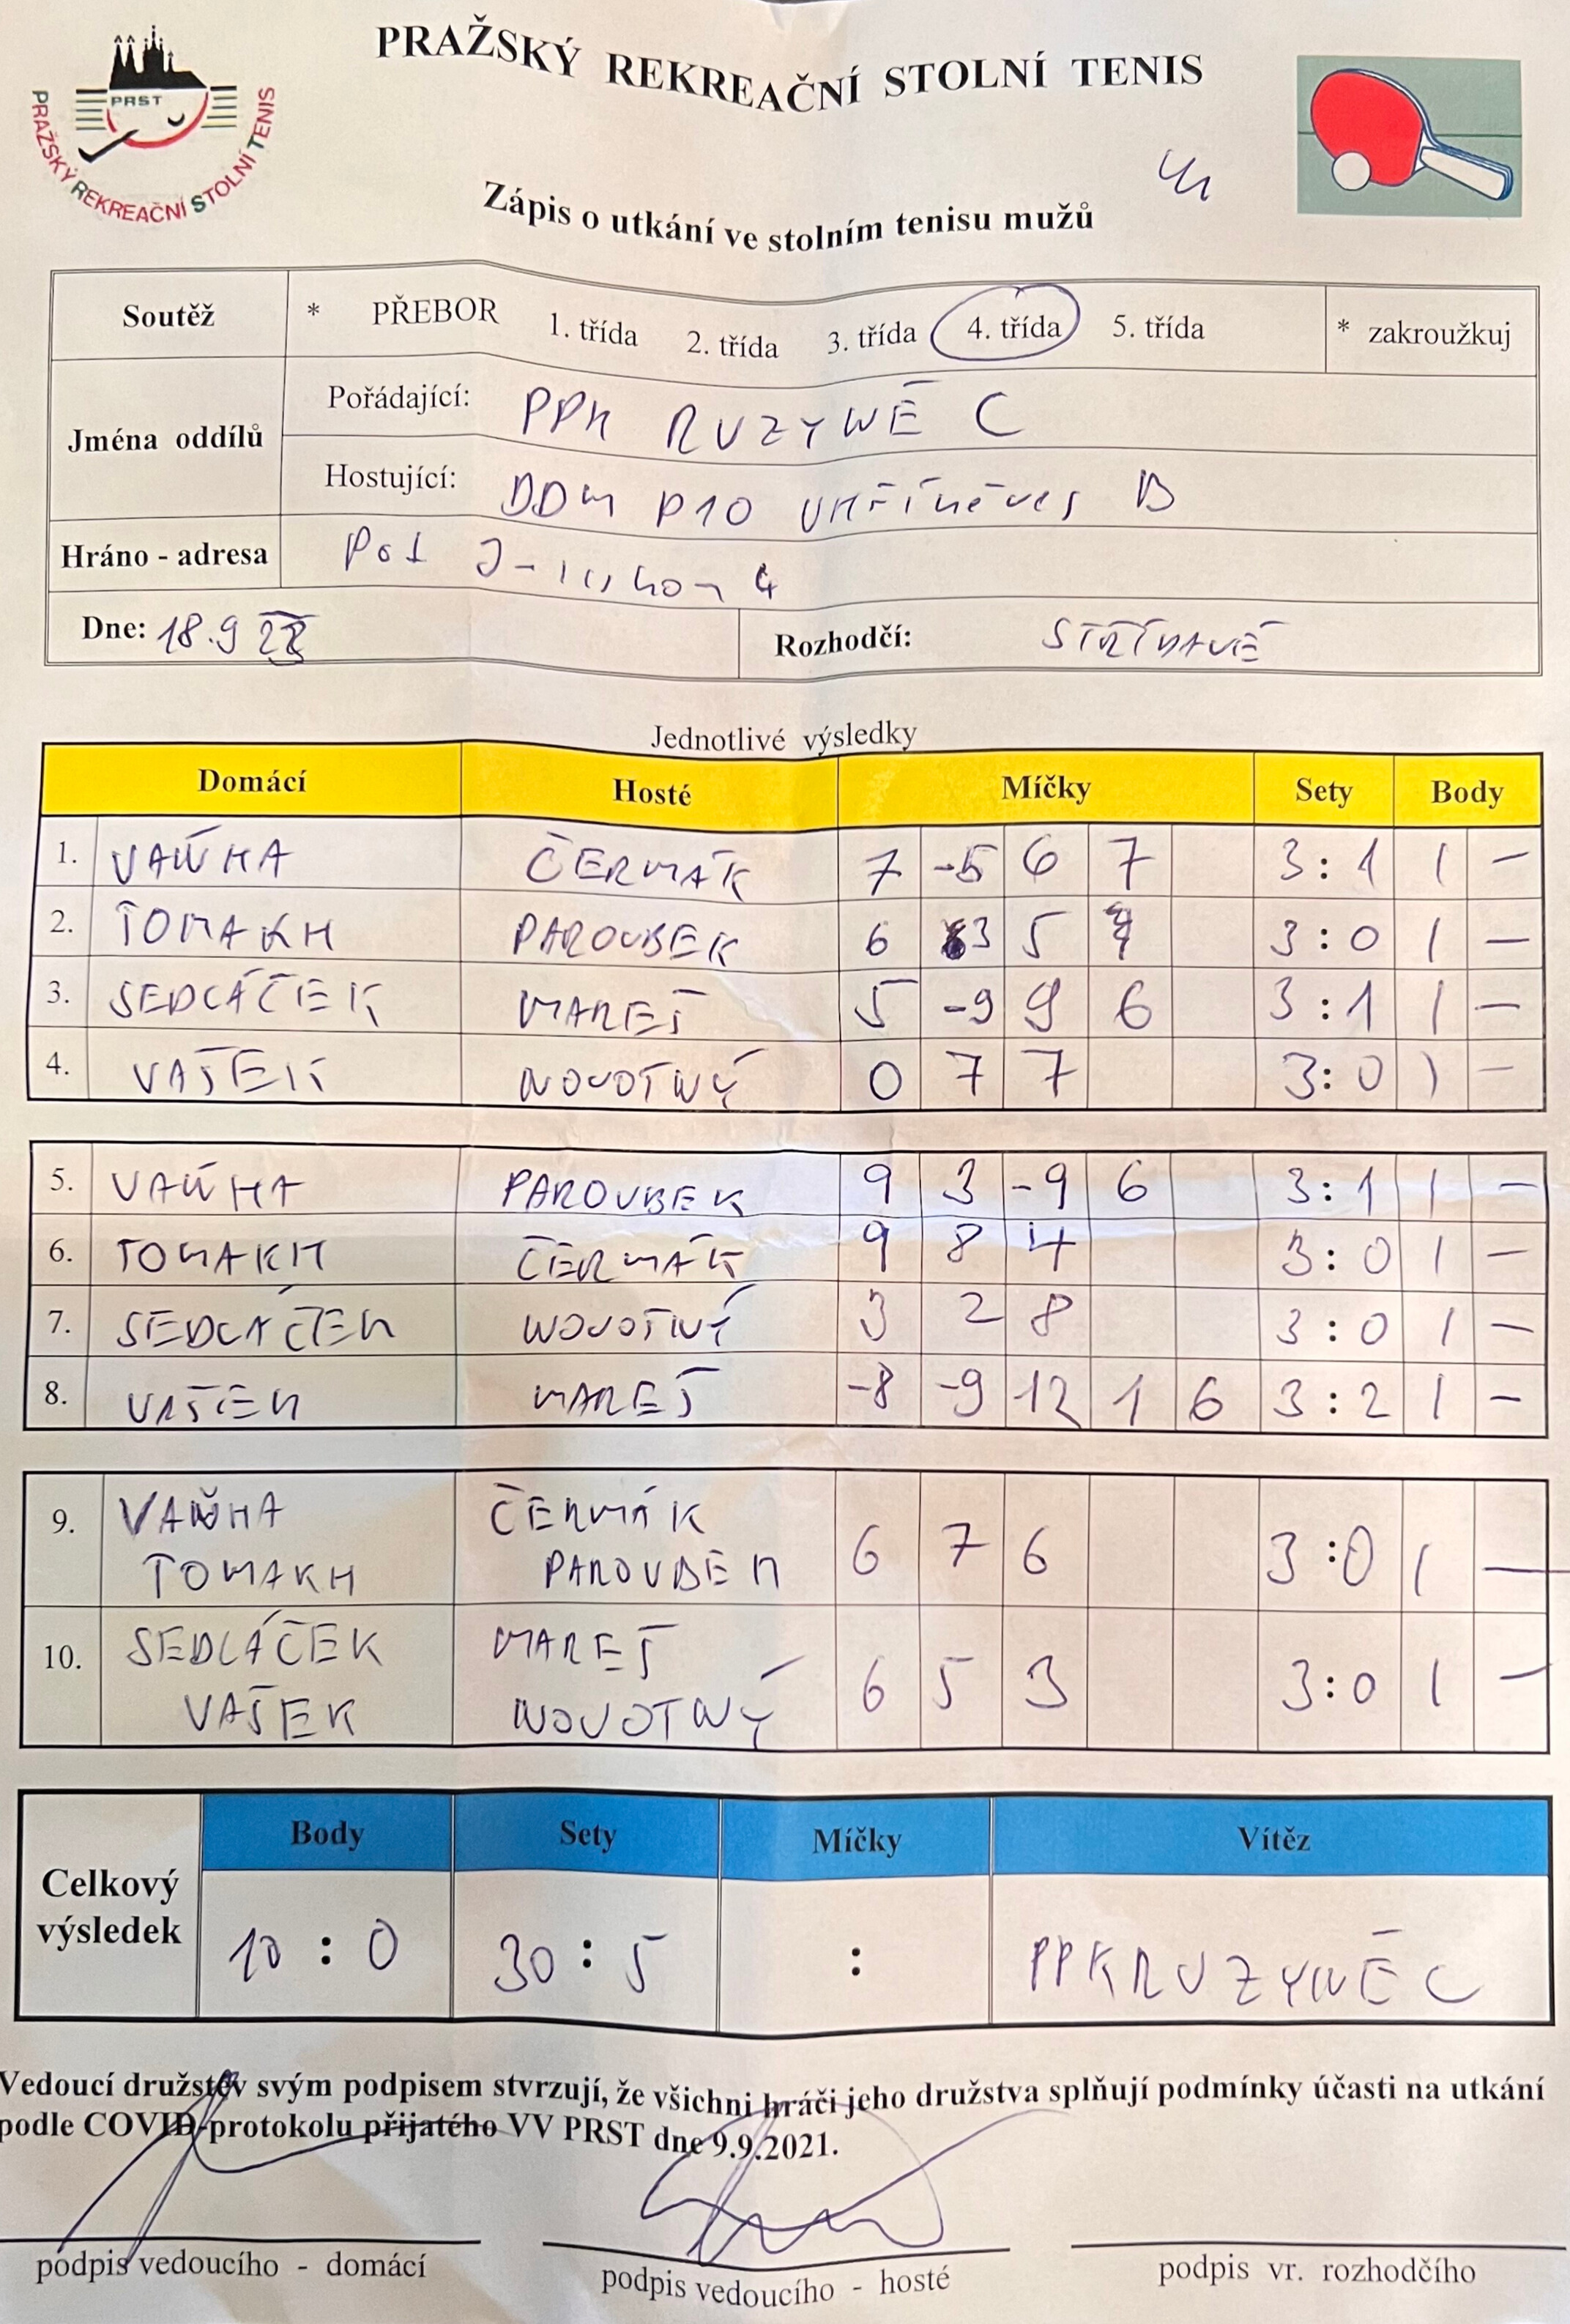 PRAŽSKÝ REKREAČNÍ STOLNÍ TENIS
PRST
PRAŽSKÝ REKREAČNÍ STOLNÍ TENIS
Zápis o utkání ve stolním tenisu mužů
Soutěž * PŘEBOR 1. třída 2. třída 3. třída 4. třída 5. třída * zakroužkuj
Jména oddílů
Pořádající: PPK RUZYNĚ C
Hostující: DDM P10 UHŘÍNĚVES B
Hráno - adresa
Dne: 18.9 Rozhodčí:
Jednotlivé výsledky
Domácí Hosté Míčky Sety Body
1. VAŇHA ČERMÁK 7 -5 6 7 3:1 1 -
2. TOMAKH PAROUBEK 6 3 5 3:0 1 -
3. SEDLÁČEK MAREŠ 5 -9 9 6 3:1 1 -
4. VAŠEK NOVOTNÝ 0 7 7 3:0 1 -
5. VAŇHA PAROUBEK 9 3 -9 6 3:1 1 -
6. TOMAKH ČERMÁK 9 8 4 3:0 1 -
7. SEDLÁČEK NOVOTNÝ 3 2 8 3:0 1 -
8. VAŠEK MAREŠ -8 -9 12 1 6 3:2 1 -
9. VAŇHA ČERMÁK 6 7 6 3:0 1 -
TOMAKH PAROUBEK
10. SEDLÁČEK MAREŠ 6 5 3 3:0 1 -
VAŠEK NOVOTNÝ
Body Sety Míčky Vítěz
Celkový výsledek 10 : 0 30 : 5 : PPK RUZYNĚ C
Vedoucí družstev svým podpisem stvrzují, že všichni hráči jeho družstva splňují podmínky účasti na utkání
podle COVID-protokolu přijatého VV PRST dne 9.9.2021.
podpis vedoucího - domácí podpis vedoucího - hosté podpis vr. rozhodčího